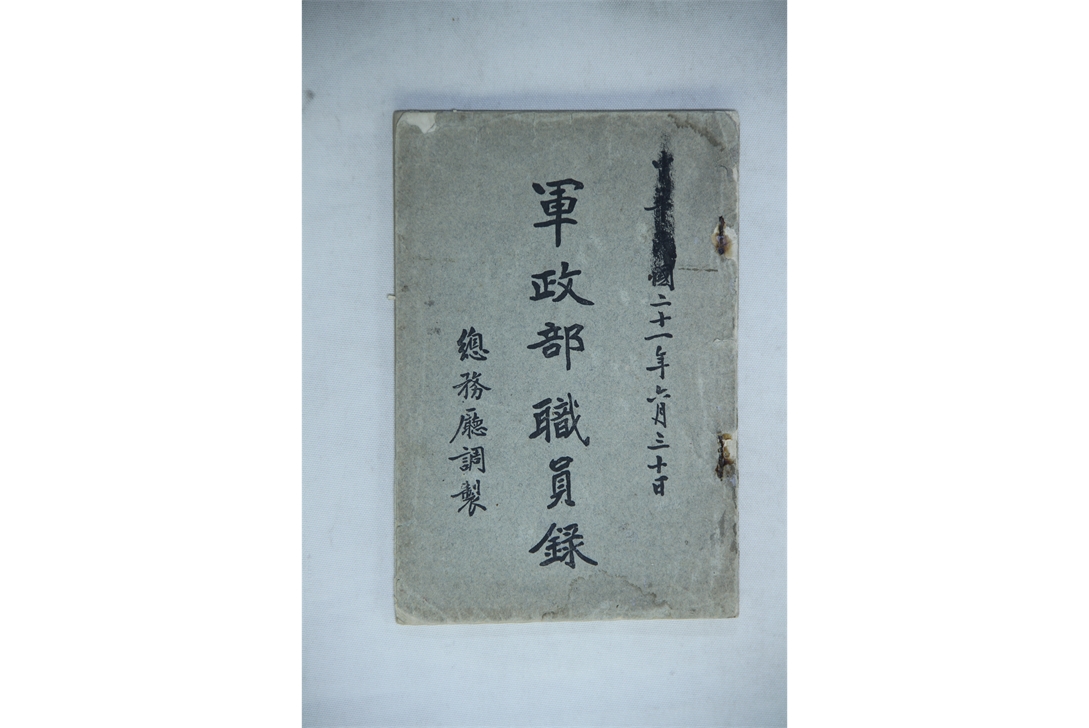 中華民國二十一年六月三十日
軍政部職員録
總務廳調製